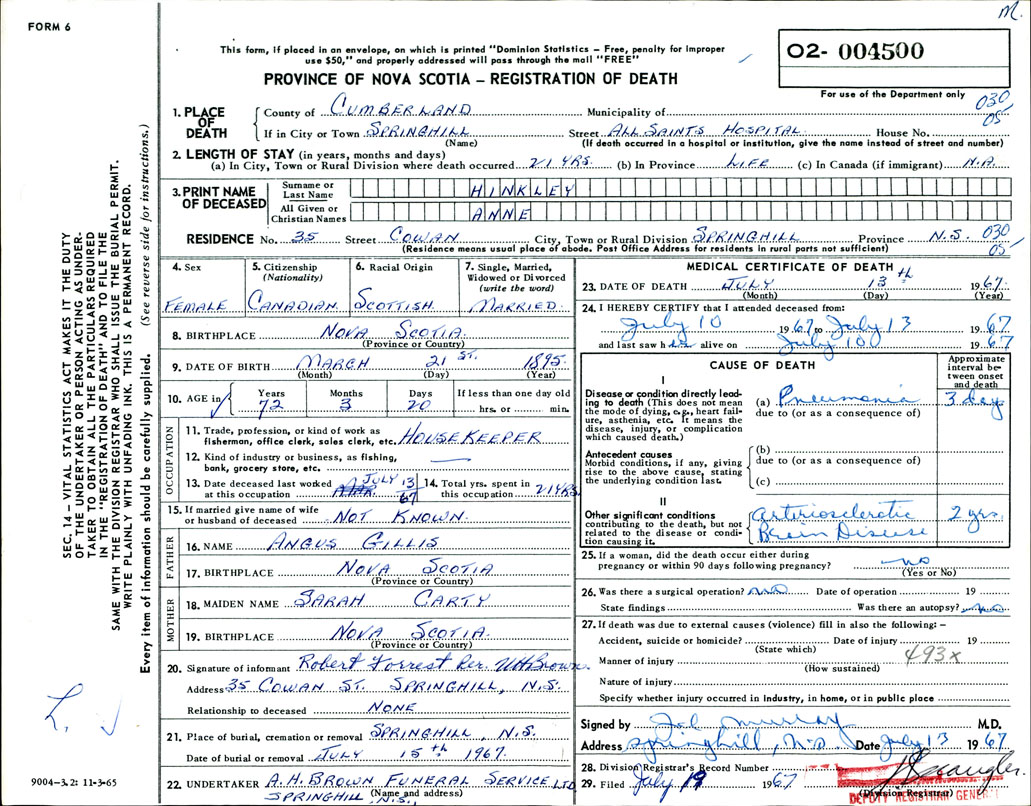 M.
FORM 6
This form, if placed in an envelope, on which is printed "Dominion Statistics – Free, penalty for improper
use $50," and properly addressed will pass through the mail "FREE"
PROVINCE OF NOVA SCOTIA – REGISTRATION OF DEATH
02- 004500
For use of the Department only
030
05
1. PLACE OF DEATH
County of CUMBERLAND Municipality of
If in City or Town SPRINGHILL Street ALL SAINTS HOSPITAL House No.
(Name) (If death occurred in a hospital or institution, give the name instead of street and number)
2. LENGTH OF STAY (in years, months and days)
(a) In City, Town or Rural Division where death occurred 21 YRS. (b) In Province LIFE (c) In Canada (if immigrant) N.A.
3. PRINT NAME OF DECEASED
Surname or Last Name HINKLEY
All Given or Christian Names ANNE
RESIDENCE No. 35 Street COWAN City, Town or Rural Division SPRINGHILL Province N.S. 030
05
(Residence means usual place of abode. Post Office Address for residents in rural parts not sufficient)
4. Sex
FEMALE
5. Citizenship
(Nationality)
CANADIAN
6. Racial Origin
SCOTTISH
7. Single, Married,
Widowed or Divorced
(write the word)
MARRIED
8. BIRTHPLACE NOVA SCOTIA
(Province or Country)
9. DATE OF BIRTH MARCH 21 ST. 1895
(Month) (Day) (Year)
10. AGE in
Years Months Days If less than one day old
72 3 20 hrs. or min.
OCCUPATION
11. Trade, profession, or kind of work as
fisherman, office clerk, sales clerk, etc. HOUSEKEEPER
12. Kind of industry or business, as fishing,
bank, grocery store, etc.
13. Date deceased last worked
at this occupation JULY 13/67
14. Total yrs. spent in
this occupation 21 YRS.
15. If married give name of wife
or husband of deceased NOT KNOWN
FATHER
16. NAME ANGUS GILLIS
17. BIRTHPLACE NOVA SCOTIA
(Province or Country)
MOTHER
18. MAIDEN NAME SARAH CARTY
19. BIRTHPLACE NOVA SCOTIA
(Province or Country)
20. Signature of informant Robert Forrest Per. Brown
Address 35 COWAN ST. SPRINGHILL, N.S.
Relationship to deceased NONE
21. Place of burial, cremation or removal SPRINGHILL, N.S.
Date of burial or removal JULY 15 th 1967.
22. UNDERTAKER A.H. BROWN FUNERAL SERVICE LTD
(Name and address)
SPRINGHILL, N.S.
MEDICAL CERTIFICATE OF DEATH
23. DATE OF DEATH JULY 13 th 1967.
(Month) (Day) (Year)
24. I HEREBY CERTIFY that I attended deceased from:
July 10 1967 to July 13 1967
and last saw h alive on July 10 1967
CAUSE OF DEATH
Approximate
interval be-
tween onset
and death
I
Disease or condition directly lead-
ing to death (This does not mean
the mode of dying, e.g., heart fail-
ure, asthenia, etc. It means the
disease, injury, or complication
which caused death.)
(a) Pneumonia 3 day
due to (or as a consequence of)
Antecedent causes
Morbid conditions, if any, giving
rise to the above cause, stating
the underlying condition last.
(b)
due to (or as a consequence of)
(c)
II
Other significant conditions
contributing to the death, but not
related to the disease or condi-
tion causing it.
Arteriosclerotic 2 yrs.
Brain Disease
25. If a woman, did the death occur either during
pregnancy or within 90 days following pregnancy? no
(Yes or No)
26. Was there a surgical operation? no Date of operation 19
State findings Was there an autopsy? no
27. If death was due to external causes (violence) fill in also the following: –
Accident, suicide or homicide? Date of injury 19
(State which)
493x
Manner of injury
(How sustained)
Nature of injury
Specify whether injury occurred in Industry, in home, or in public place
Signed by Murray M.D.
Address Springhill, N.S. Date July 13 1967.
28. Division Registrar's Record Number
29. Filed July 19 1967
(Division Registrar)
DEPUTY REGISTRAR GENERAL
SEC. 14 – VITAL STATISTICS ACT MAKES IT THE DUTY
OF THE UNDERTAKER OR PERSON ACTING AS UNDER-
TAKER TO OBTAIN ALL THE PARTICULARS REQUIRED
IN THE "REGISTRATION OF DEATH" AND TO FILE THE
SAME WITH THE DIVISION REGISTRAR WHO SHALL ISSUE THE BURIAL PERMIT.
WRITE PLAINLY WITH UNFADING INK. THIS IS A PERMANENT RECORD.
Every item of information should be carefully supplied. (See reverse side for instructions.)
9004–3.2: 11-3-65